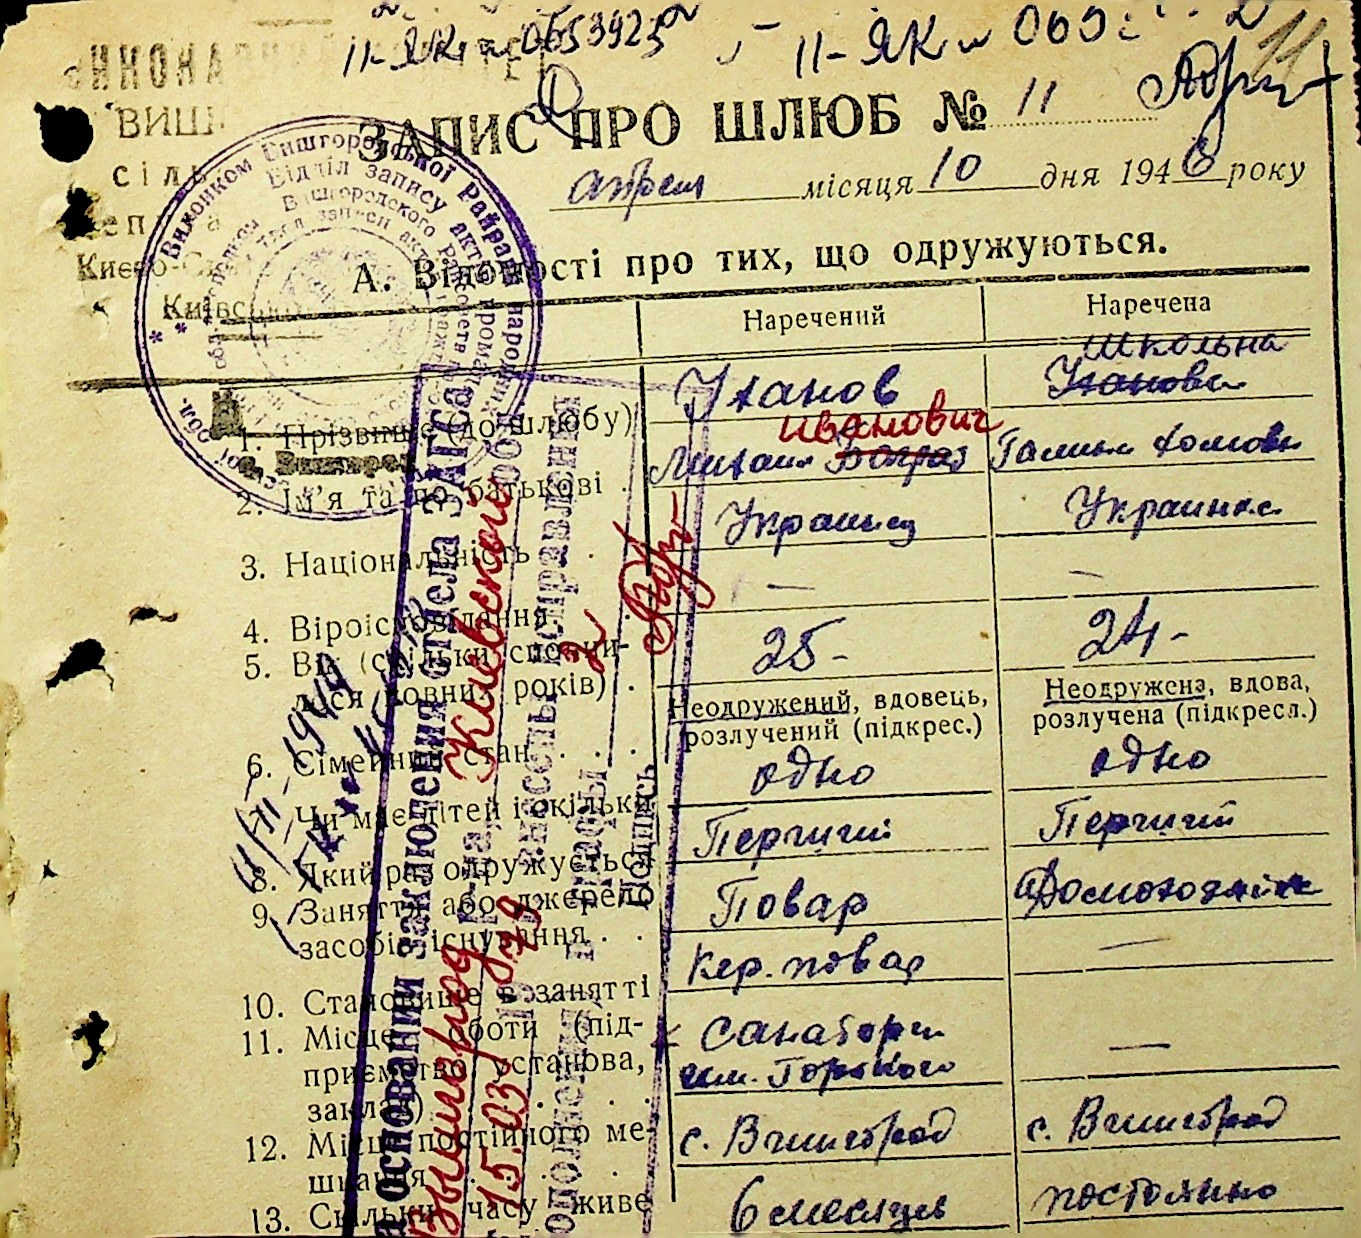 II-ЯК № 0653925
II-ЯК № 069
11
ВИШ
сіл
ЗАПИС ПРО ШЛЮБ № 11
апреля місяця 10 дня 1946 року
Києво-С
Київсь
Виконком Вишгородської Райради народних
Відділ запису актів громад
А. Відомості про тих, що одружуються.
Наречений
Наречена
1. Прізвище (до шлюбу)
Уханов
Школьна
Уханова
2. Ім'я та по батькові
Иванович
Михаил
Галина
3. Національність
Украинец
Украинка
4. Віроісповідання
—
—
5. Вік (скільки сповни-
лося повних років)
25-
24-
6. Сімейний стан
Неодружений, вдовець,
розлучений (підкрес.)
Неодружена, вдова,
розлучена (підкресл.)
7. Чи має дітей і скільки
одно
одно
8. Який раз одружується
Перший
Перший
9. Заняття або джерело
засобів існування
Повар
Домохозяйка
10. Становище в занятті
Кер. повар
—
11. Місце роботи (під-
приємство, установа,
заклад)
Санатории
им. Горького
—
12. Місце постійного ме-
шкання
с. Вышгород
с. Вышгород
13. Скільки часу живе
6 месяцев
постоянно
а основании заключения отдела ЗАГС
Вышгород р-на, Киевской обл
15.03 1979
Подпись